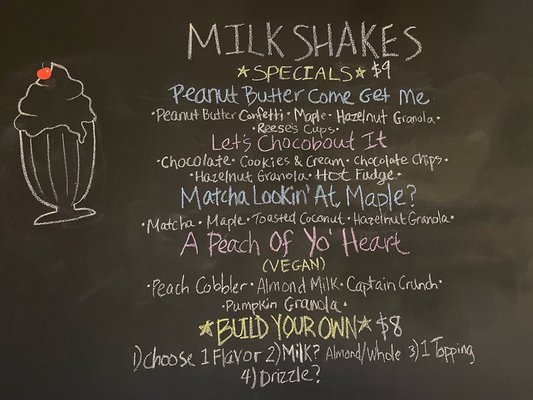 MILKSHAKES
★SPECIALS★ $9
Peanut Butter Come Get Me
•Peanut Butter Confetti • Maple • Hazelnut Granola•
•Reese's Cups•
Let's Chocobout It
•Chocolate • Cookies & Cream • Chocolate Chips•
•Hazelnut Granola • Hot Fudge•
Matcha Lookin' At Maple?
•Matcha • Maple • Toasted Coconut • Hazelnut Granola•
A Peach Of Yo' Heart
(VEGAN)
•Peach Cobbler • Almond Milk • Captain Crunch•
•Pumpkin Granola•
★BUILD YOUR OWN★ $8
1) choose 1 Flavor 2) Milk? Almond/Whole 3) 1 Topping
4) Drizzle?